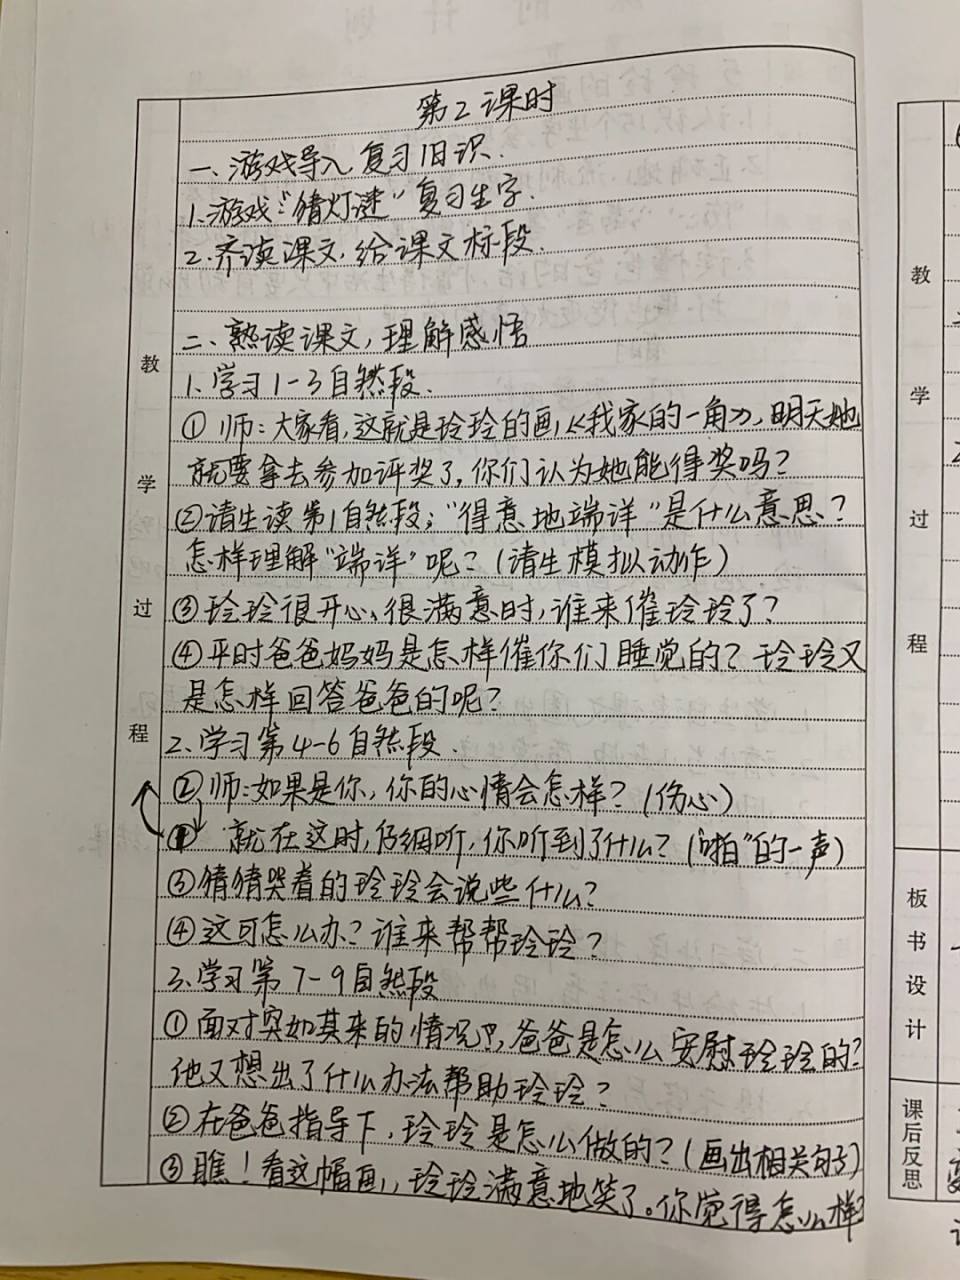 第2课时
一、游戏导入 复习旧识.
1.游戏:"猜灯谜" 复习生字.
2.齐读课文,给课文标段.
二、熟读课文,理解感悟
1.学习1-3自然段.
①师:大家看,这就是玲玲的画,《我家的一角》,明天她
就要拿去参加评奖了,你们认为她能得奖吗?
②请生读第1自然段;"得意地端详"是什么意思?
怎样理解"端详"呢?(请生模拟动作)
③玲玲很开心、很满意时,谁来催玲玲了?
④平时爸爸妈妈是怎样催你们睡觉的?玲玲又
是怎样回答爸爸的呢?
2.学习第4-6自然段.
②师:如果是你,你的心情会怎样?(伤心)
① 就在这时,仔细听,你听到了什么?("啪"的一声)
③猜猜哭着的玲玲会说些什么?
④这可怎么办?谁来帮帮玲玲?
3.学习第7-9自然段
①面对突如其来的情况,爸爸是怎么安慰玲玲的?
他又想出了什么办法帮助玲玲?
②在爸爸指导下,玲玲是怎么做的?(画出相关句子)
③瞧!看这幅画,玲玲满意地笑了。你觉得怎么样?
教
学
过
程
教
学
过
程
板
书
设
计
课
后
反
思